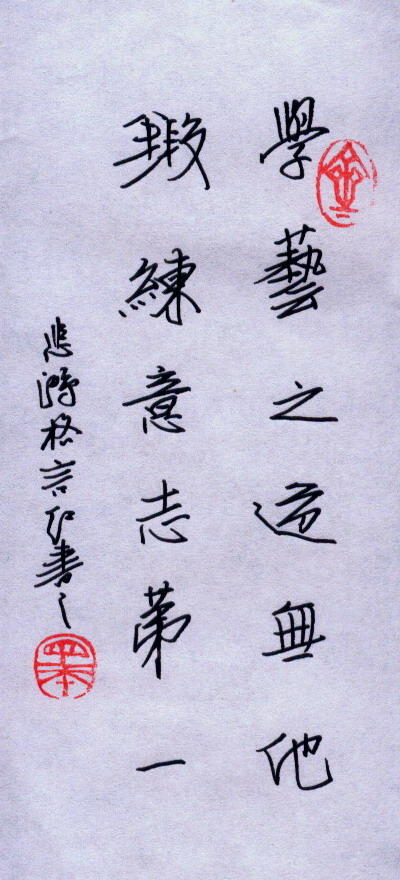 學藝之道無他
鍛練意志第一
悲鴻格言書之